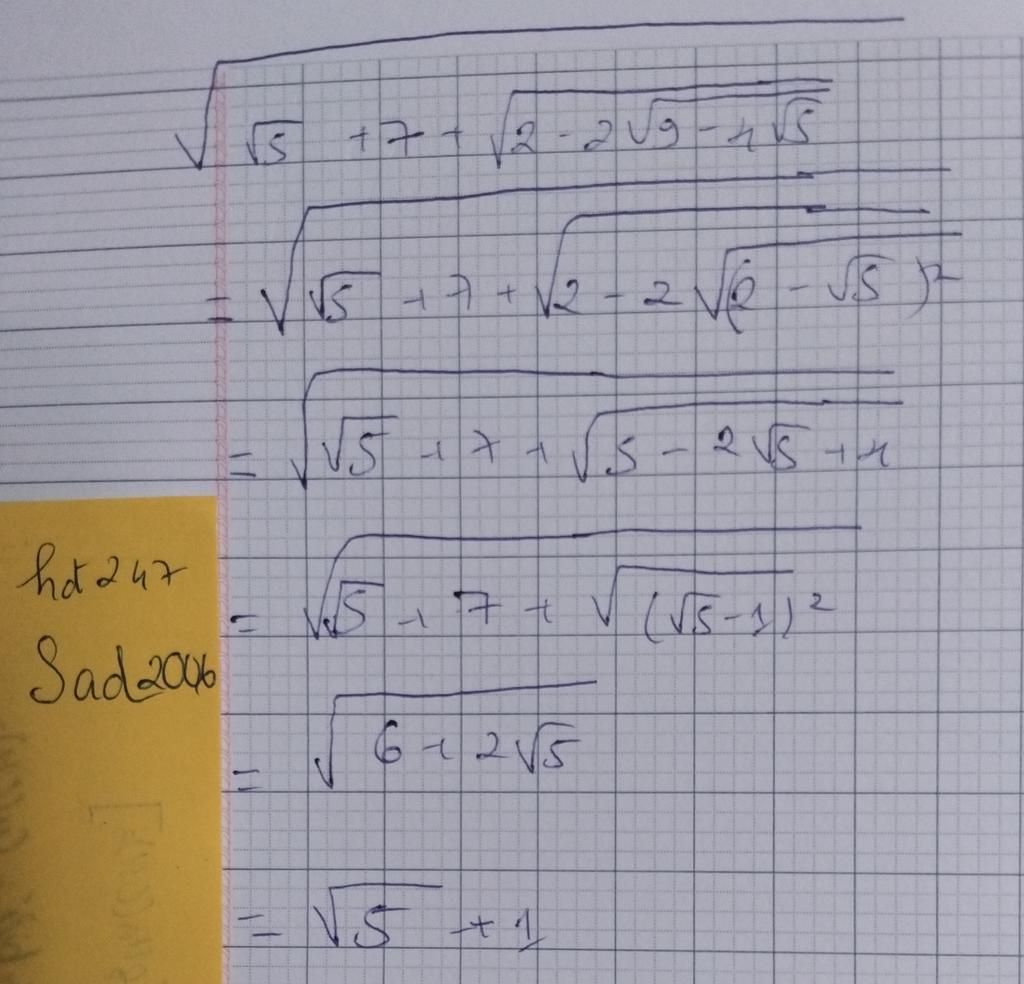 √(√5 + 7 + √(2 - 2√(9 - 4√5)))
= √(√5 + 7 + √(2 - 2√(2 - √5)²))
= √(√5 + 7 + √(5 - 2√5 + 1))
= √(√5 + 7 + √(√5 - 1)²)
= √(6 + 2√5)
= √5 + 1
hdt 247
Sad2006